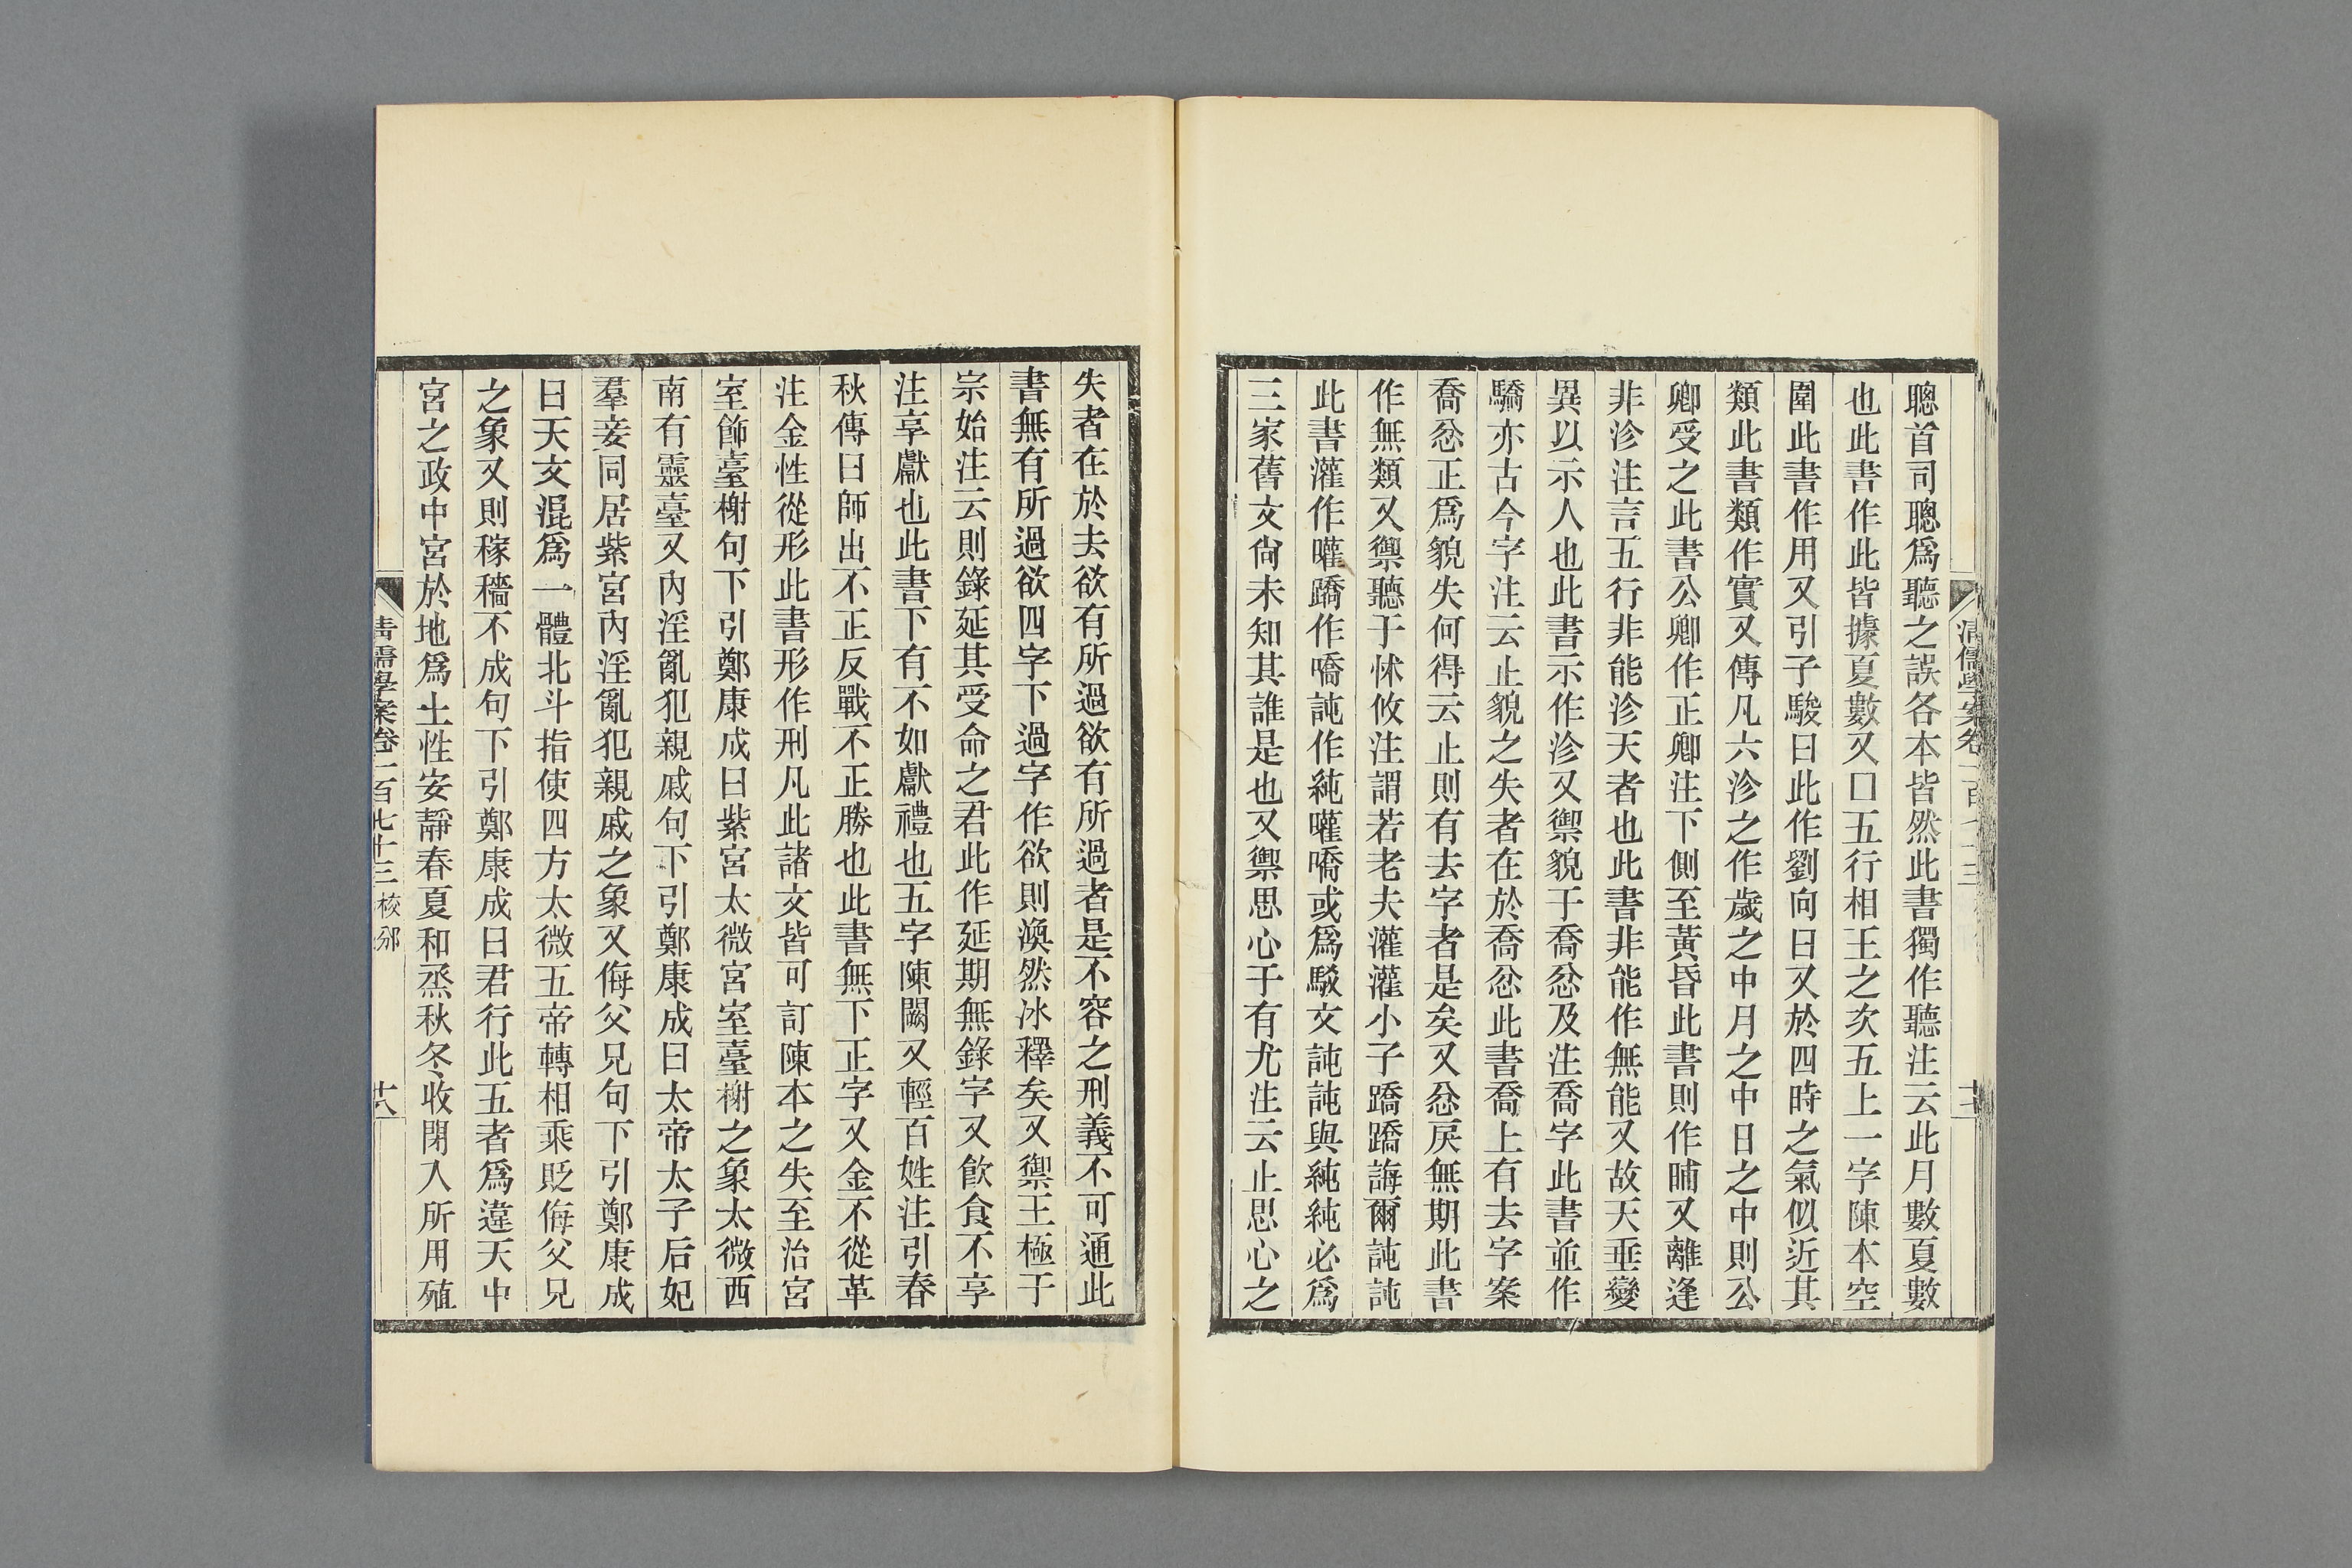 聰首司聰爲聽之誤各本皆然此書獨作聽注云此月數夏數
也此書作此皆據夏數又口五行相王之次五上一字陳本空
圍此書作用又引子駿曰此作劉向曰又於四時之氣似近其
類此書類作實又傳凡六沴之作歲之中月之中日之中則公
卿受之此書公卿作正卿注下側至黃昏此書則作晡又離逢
非沴注言五行非能沴天者也此書非能作無能又故天垂變
異以示人也此書示作沴又禦貌于喬忿及注喬字此書並作
驕亦古今字注云止貌之失者在於喬忿此書喬上有去字案
喬忿正爲貌失何得云止則有去字者是矣又忿戾無期此書
作無類又禦聽于怵攸注謂若老夫灌灌小子蹻蹻誨爾訰訰
此書灌作嚾蹻作嘺訰作純嚾嘺或爲駁文訰訰與純純必爲
三家舊文尙未知其誰是也又禦思心于有尤注云止思心之
清儒學案卷一百七十三
十七
失者在於去欲有所過欲有所過者是不容之刑義不可通此
書無有所過欲四字下過字作欲則渙然冰釋矣又禦王極于
宗始注云則錄延其受命之君此作延期無錄字又飮食不享
注享獻也此書下有不如獻禮也五字陳闕又輕百姓注引春
秋傳曰師出不正反戰不正勝也此書無下正字又金不從革
注金性從形此書形作刑凡此諸文皆可訂陳本之失至治宮
室飾臺榭句下引鄭康成曰紫宮太微宮室臺榭之象太微西
南有靈臺又內淫亂犯親戚句下引鄭康成曰太帝太子后妃
羣妾同居紫宮內淫亂犯親戚之象又侮父兄句下引鄭康成
曰天文混爲一體北斗指使四方太微五帝轉相乘貶侮父兄
之象又則稼穡不成句下引鄭康成曰君行此五者爲違天中
宮之政中宮於地爲土性安靜春夏和烝秋冬收閉入所用殖
清儒學案卷一百七十三 校 邠
十八